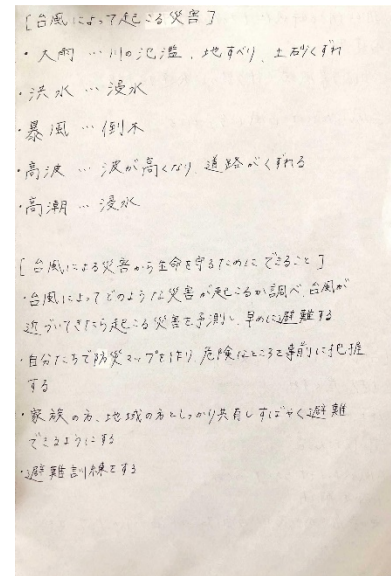 [台風によって起こる災害]
・大雨…川の氾濫、地すべり、土砂くずれ
・洪水…浸水
・暴風…倒木
・高波…波が高くなり、道路がくずれる
・高潮…浸水
[台風による災害から生命を守るためにできること]
・台風によってどのような災害が起こるか調べ、台風が
近づいてきたら起こる災害を予測し、早めに避難する
・自分たちで防災マップを作り危険なところを事前に把握
する
・家族の方、地域の方としっかり共有しすばやく避難
できるようにする
・避難訓練をする